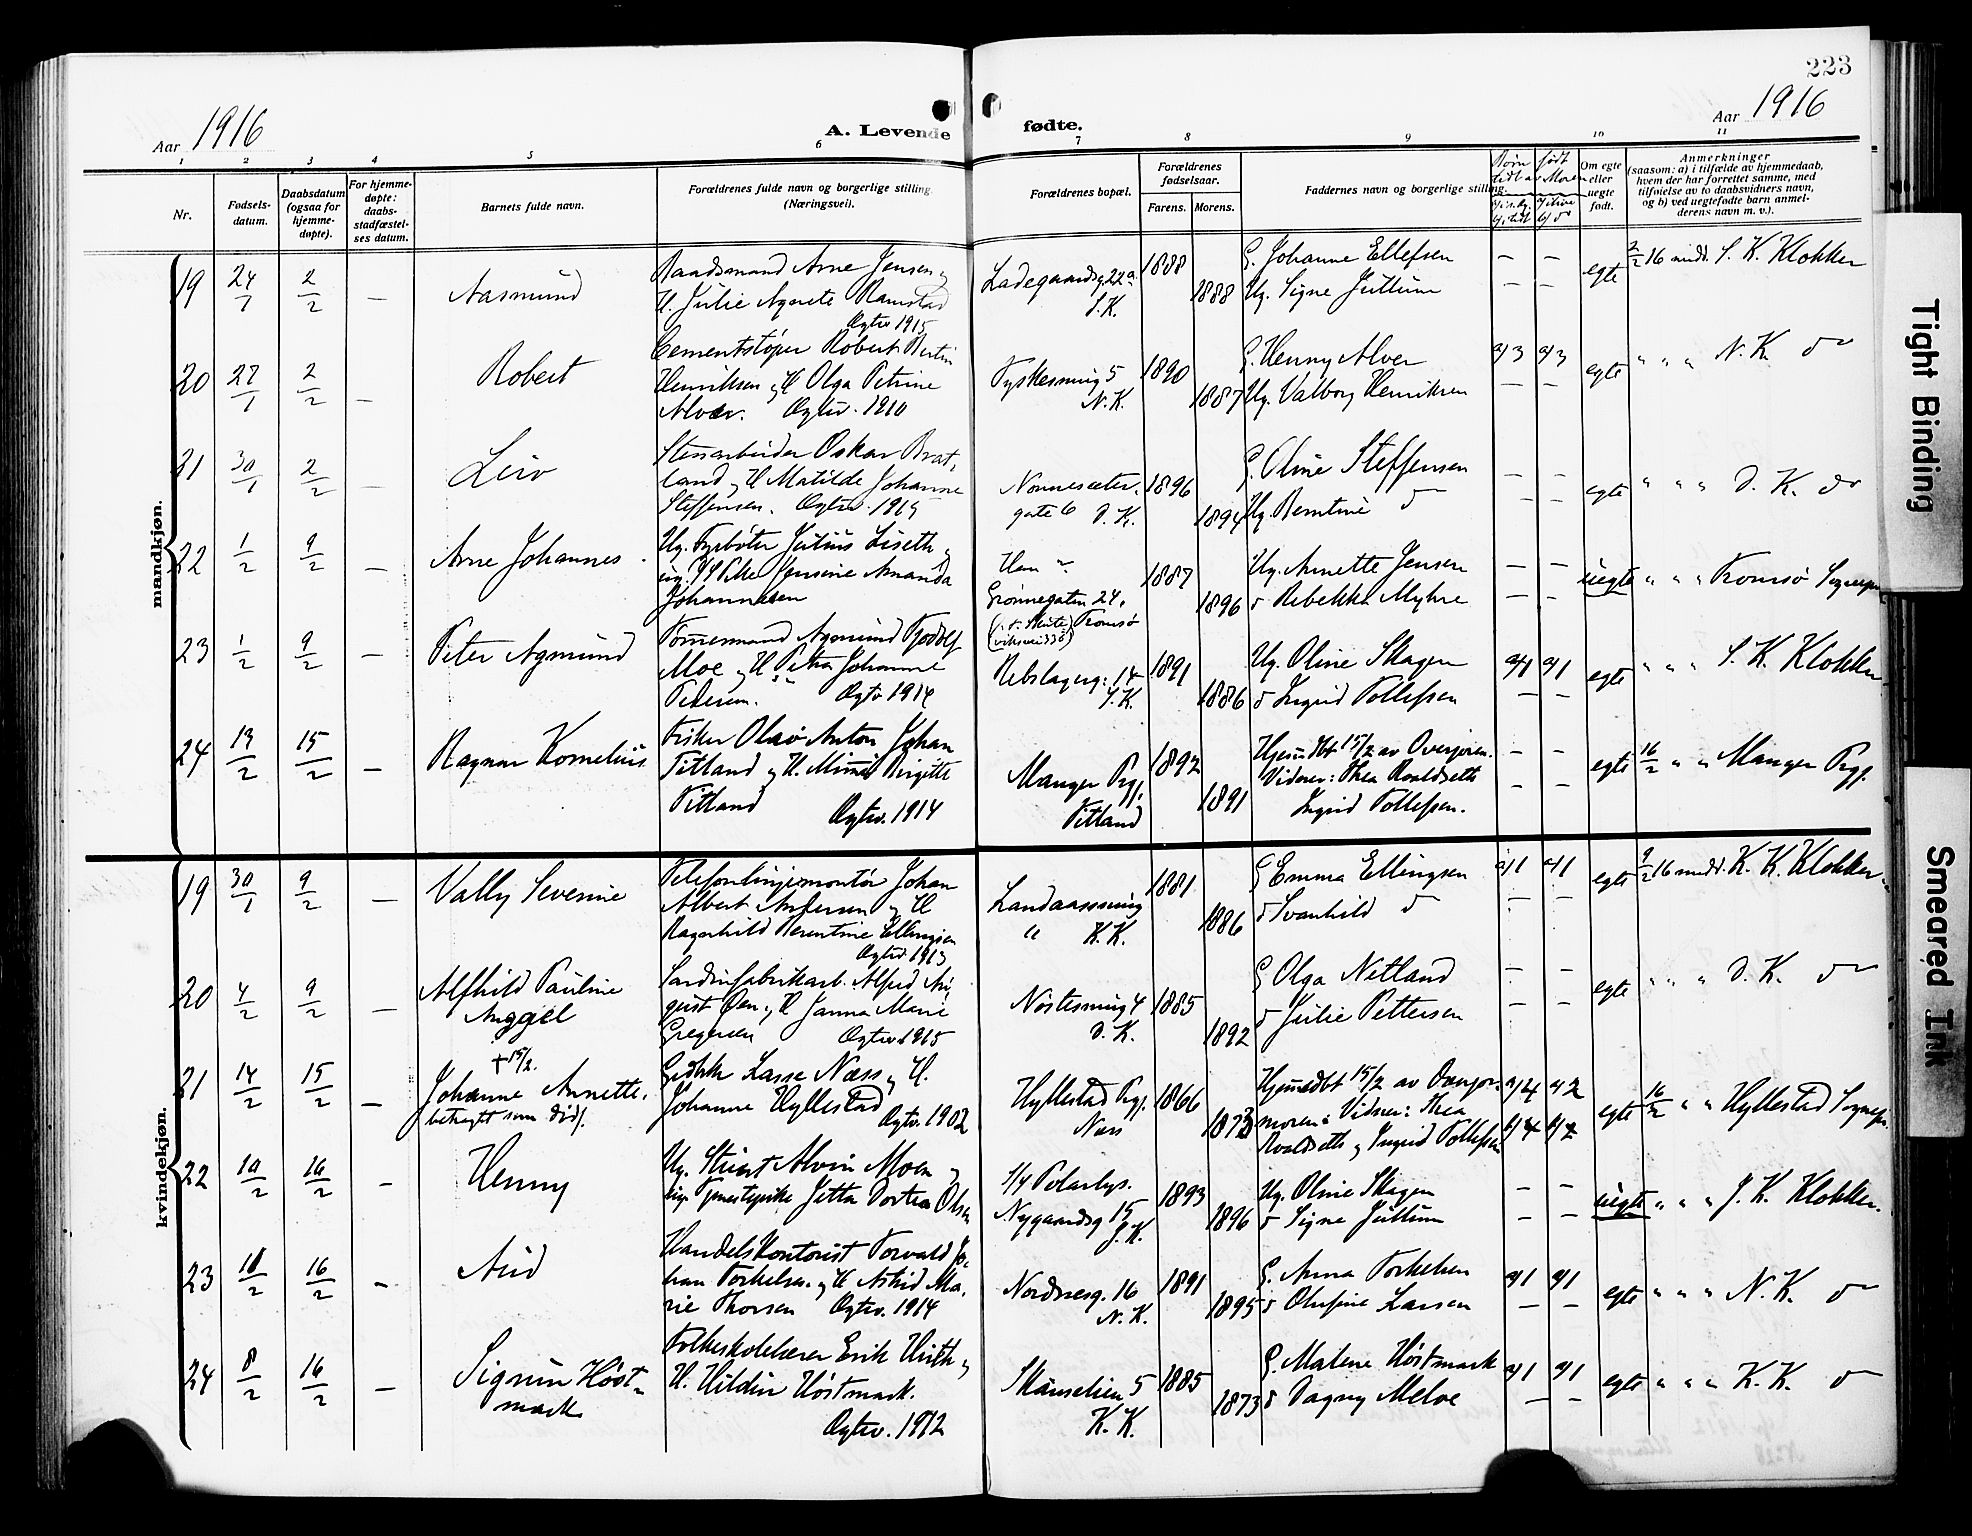 223
Aar 1916
A. Levende
fødte.
Aar 1916
1 2 3 4 5 6 7 8 9 10 11
Nr.
Fødsels-
datum.
Daabsdatum
(ogsaa for
hjemme-
døpte).
For hjemme-
døpte:
daabs-
stadfæstel-
ses datum.
Barnets fulde navn.
Forældrenes fulde navn og borgerlige stilling
(Næringsvei).
Forældrenes bopæl.
Forældrenes
fødselsaar.
Farens. Morens.
Faddernes navn og borgerlige stilling.
Børn født
av Moren
Om egte
eller
uegte
født.
Anmerkninger
(saasom: a) i tilfælde av hjemmedaab,
hvem der har forrettet samme, med
tilføielse av to daabsvidners navn,
og b) ved uegtefødte barn anmel-
derens navn m. v.).
mandkjøn.
19 24/1 2/2 — Aasmund
Baadsmand Arne Jensen og
H. Julie Agnete Ramstad
Egtev 1915
Ladegaardsg 22a
S.K.
1888 1888
G. Johanne Ellefsen — —
Ug. Signe Juttum — —
egte 2/2 16 medd. S. K. Klokker
20 27/1 2/2 — Robert
Cementstøper Robert Bertin
Henriksen og H Olga Petrine
Alver. Egtev. 1910
Tyskesmug 5
N.K.
1890 1887
G. Henny Alver a/3 a/3
Ug. Valborg Henriksen — —
egte " " " N. K. do
21 30/1 2/2 — Leiv
Stenarbeider Oskar Brat-
land og H Matilde Johanne
Steffensen. Egtev. 1915
Nonnesæter-
gate 6 D.K.
1896 1894
G. Oline Steffensen — —
Ug. Berntine do — —
egte " " " D. K. do
22 1/2 9/2 — Arne Johannes
Ug. Fyrbøter Julius Liseth og
Jensine Amanda
Johannesen
Grønnegaten 24.
Tromsø
1887 1896
Ug. Annette Jensen — —
do Rebekka Myhre — —
uegte " " " Tromsø Sognepr.
23 1/2 9/2 — Peter Agmund
Tømmermand Agmund Tjodolf
Moe og H. Petra Johanne
Pedersen. Egtv 1914
Rebslagerg: 14
S.K.
1891 1886
Ug. Oline Skagen a/1 a/1
do Ingrid Tollefsen — —
egte " " " S. K. Klokker
24 13/2 15/2 — Ragnar Kornelius
Fisker Olav Anton Johan
Titland og H. Minni Birgitte
Titland Egtev. 1914
Manger Prgj.
Titland
1892 1891
Hjemdbt 15/2 av Overjorm.
Vidner: Thea Roaldseth
Ingrid Tollefsen.
— —
— —
egte 16/2 " " Manger Prgj.
kvindekjøn.
19 30/1 9/2 — Vally Severine
Telefonlinjemontør Johan
Albert Andersen og H
Ragnhild Berentine Ellingsen
Egtev 1913
Landaassmug
" K.K.
1881 1886
G Emma Ellingsen a/1 a/1
do Svanhild do — —
egte 9/2 16 medd. K. K. Klokker
20 4/2 9/2 — Alfhild Pauline
Auggel
Sardinfabrikarb. Alfred Au-
gust Øen og H Janna Marie
Gregersen Egtev. 1915
Nøstesmug 4
D.K.
1885 1892
G Olga Netland — —
do Julie Pettersen — —
egte " " " D. K. do
21 14/2 15/2 — + 15/2.
Johanne Annette.
betragt som død f.
Gidbr. Lasse Næss og H.
Johanne Hyllestad
Egtv. 1902
Hyllestad Prgj.
Næss
1866 1873
Hjemmedbt 15/2 av Overjor-
moren: Vidner: Thea
Roaldseth og Ingrid Tollefsen
a/4 a/2
b/4 b/2
egte 16/2 " " Hyllestad Sognepr.
22 10/2 16/2 — Henny
Ug. Stuert Alvin Moen og
Ug. Tjenestepike Jetta Dortea Olsen
S/S Polarlys.
Nygaardsg 15
J.K.
1893 1896
Ug. Oline Skagen — —
do Signe Juttum — —
uegte " " " J. K. Klokker.
23 10/2 16/2 — Aud
Handelskontorist Torvald Jo-
han Torkelsen og H Astrid Ma-
rie Thorsen Egtev. 1914
Nordnesg. 16
N.K.
1891 1895
G. Anna Torkelsen a/1 a/1
do Olufine Larsen — —
egte " " " N. K. do
24 8/2 16/2 — Sigrun Høst-
mark
Folkeskolelærer Erik Hirth og
H. Hildur Høstmark.
Egtev. 1912
Skanselien 5
K.K.
1885 1873
G. Malene Høstmark a/1 a/1
do Dagny Melve — —
egte " " " K. K. do
Tight Binding
Smeared Ink